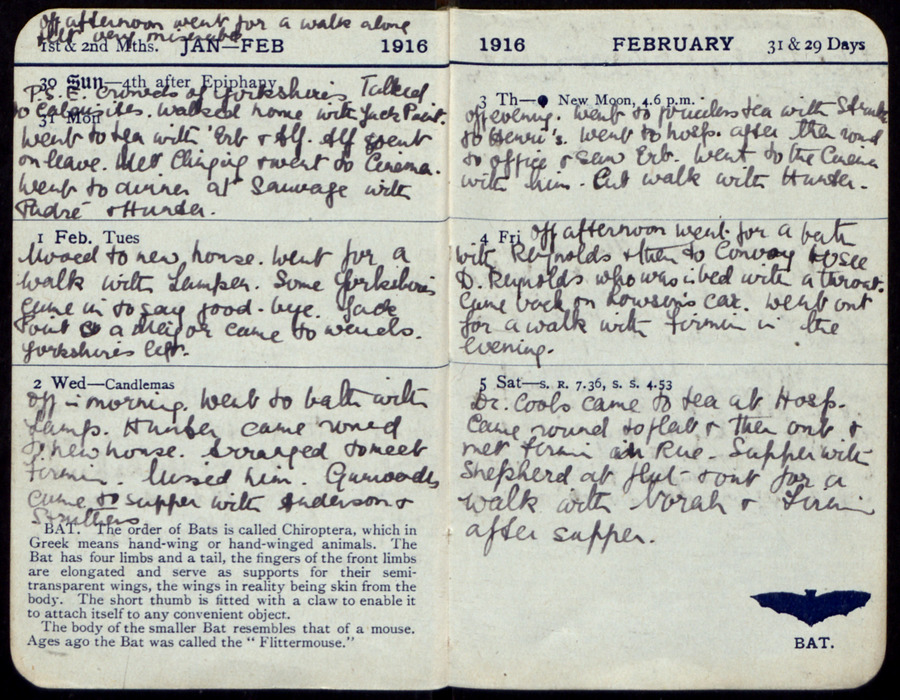 off afternoon went for a walk alone
felt very miserable
1st & 2nd Mths. JAN—FEB 1916
30 Sun—4th after Epiphany
P.S. E. crowds of Yorkshires Talked
to Colonists. Walked home with Jack Point.
31 Mon
Went to tea with Erb & Alf. Alf went
on leave. Met Clinging & went to Cinema.
Went to dinner at Sauvage with
Padré & Hunter.
1 Feb. Tues
Moved to new house. Went for a
walk with Lamper. Some Yorkshires
came in to say good-bye. Jack
Point & a Major came to
Yorkshires left.
2 Wed—Candlemas
off in morning. Went to bath with
Lamps. Hunter came round
to new house. Arranged to meet
Firmin. Missed him. Gunwoods
came to supper with Anderson &
Struthers
BAT. The order of Bats is called Chiroptera, which in
Greek means hand-wing or hand-winged animals. The
Bat has four limbs and a tail, the fingers of the front limbs
are elongated and serve as supports for their semi-
transparent wings, the wings in reality being skin from the
body. The short thumb is fitted with a claw to enable it
to attach itself to any convenient object.
The body of the smaller Bat resembles that of a mouse.
Ages ago the Bat was called the “Flittermouse.”
1916 FEBRUARY 31 & 29 Days
3 Th— New Moon, 4.6 p.m.
off evening. Went to tea with
to Henri's. Went to hosp. after then round
to office & saw Erb. Went to the Cinema
with him. Cut walk with Hunter.
4 Fri off afternoon went for a bath
with Reynolds & then to Convoy to see
D. Reynolds who was i bed with a throat.
Came back in Howson's car. Went out
for a walk with Firmin in the
evening.
5 Sat—S. R. 7.36, S. S. 4.53
Dr. Cools came to tea at Hosp.
Came round to flat & then out &
met Firmin in Rue. Supper with
Shepherd at flat & out for a
walk with Norah & Firmin
after supper.
BAT.